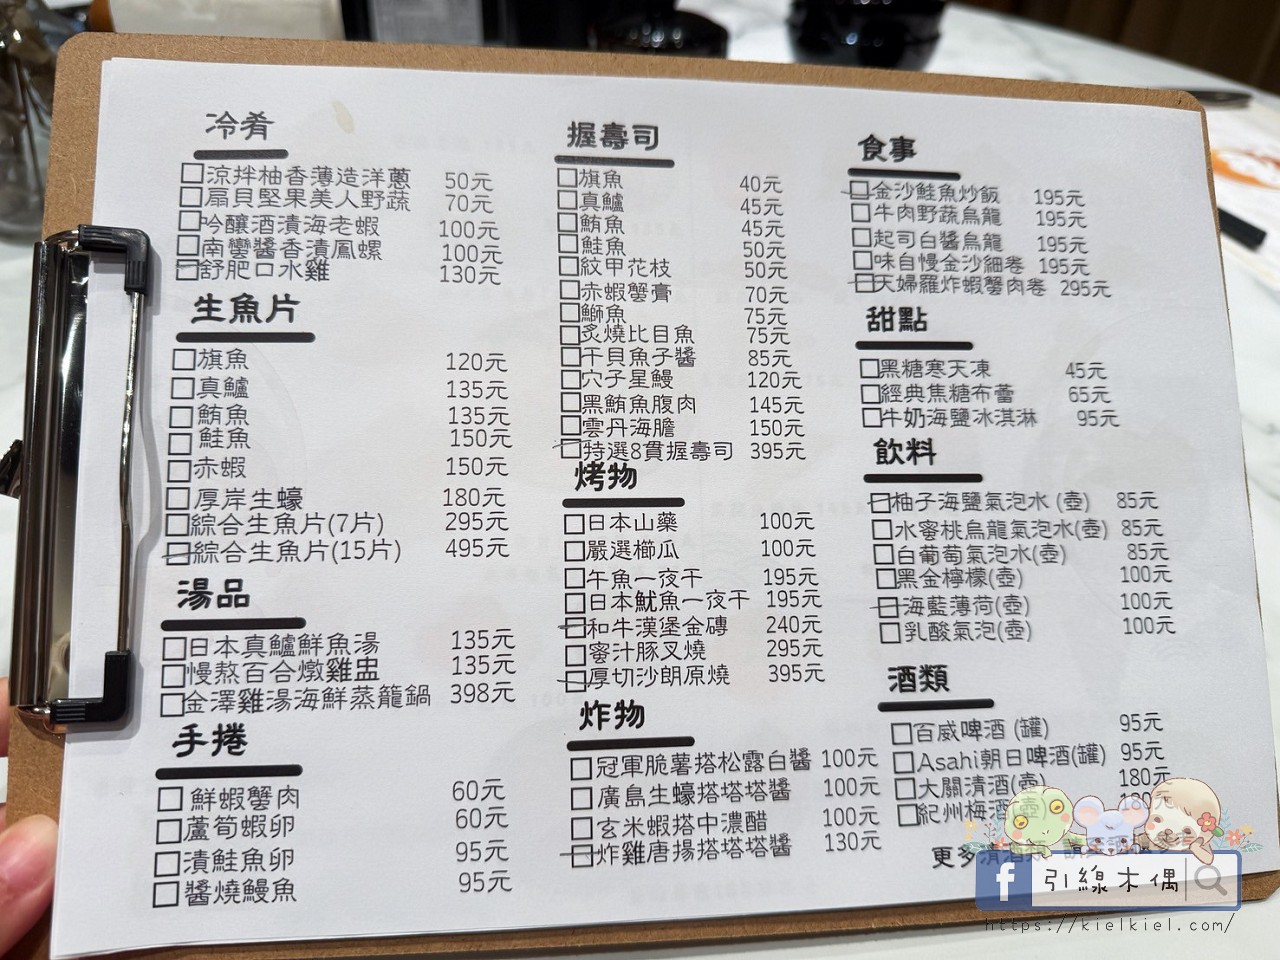 冷肴
涼拌柚香薄造洋蔥 50元
扇貝堅果美人野蔬 70元
吟釀酒漬海老蝦 100元
南蠻醬香漬鳳螺 100元
舒肥口水雞 130元
生魚片
旗魚 120元
真鱸 135元
鮪魚 135元
鮭魚 150元
赤蝦 150元
厚岸生蠔 180元
綜合生魚片(7片) 295元
綜合生魚片(15片) 495元
湯品
日本真鱸鮮魚湯 135元
慢熬百合燉雞盅 135元
金澤雞湯海鮮蒸籠鍋 398元
手捲
鮮蝦蟹肉 60元
蘆筍蝦卵 60元
漬鮭魚卵 95元
醬燒鰻魚 95元
握壽司
旗魚 40元
真鱸 45元
鮪魚 45元
鮭魚 50元
紋甲花枝 50元
赤蝦蟹膏 70元
鰤魚 75元
炙燒比目魚 75元
干貝魚子醬 85元
穴子星鰻 120元
黑鮪魚腹肉 145元
雲丹海膽 150元
特選8貫握壽司 395元
烤物
日本山藥 100元
嚴選櫛瓜 100元
午魚一夜干 195元
日本魷魚一夜干 195元
和牛漢堡金磚 240元
蜜汁豚叉燒 295元
厚切沙朗原燒 395元
炸物
冠軍脆薯搭松露白醬 100元
廣島生蠔搭塔塔醬 100元
玄米蝦搭中濃醋 100元
炸雞唐揚搭塔塔醬 130元
食事
金沙鮭魚炒飯 195元
牛肉野蔬烏龍 195元
起司白醬烏龍 195元
味自慢金沙細卷 195元
天婦羅炸蝦蟹肉卷 295元
甜點
黑糖寒天凍 45元
經典焦糖布蕾 65元
牛奶海鹽冰淇淋 95元
飲料
柚子海鹽氣泡水 (壺) 85元
水蜜桃烏龍氣泡水(壺) 85元
白葡萄氣泡水(壺) 85元
黑金檸檬(壺) 100元
海藍薄荷(壺) 100元
乳酸氣泡(壺) 100元
酒類
百威啤酒 (罐) 95元
Asahi朝日啤酒(罐) 95元
大關清酒(壺) 180元
紀州梅酒(壺)
更多清酒
f 引線木偶
https://kielkiel.com/